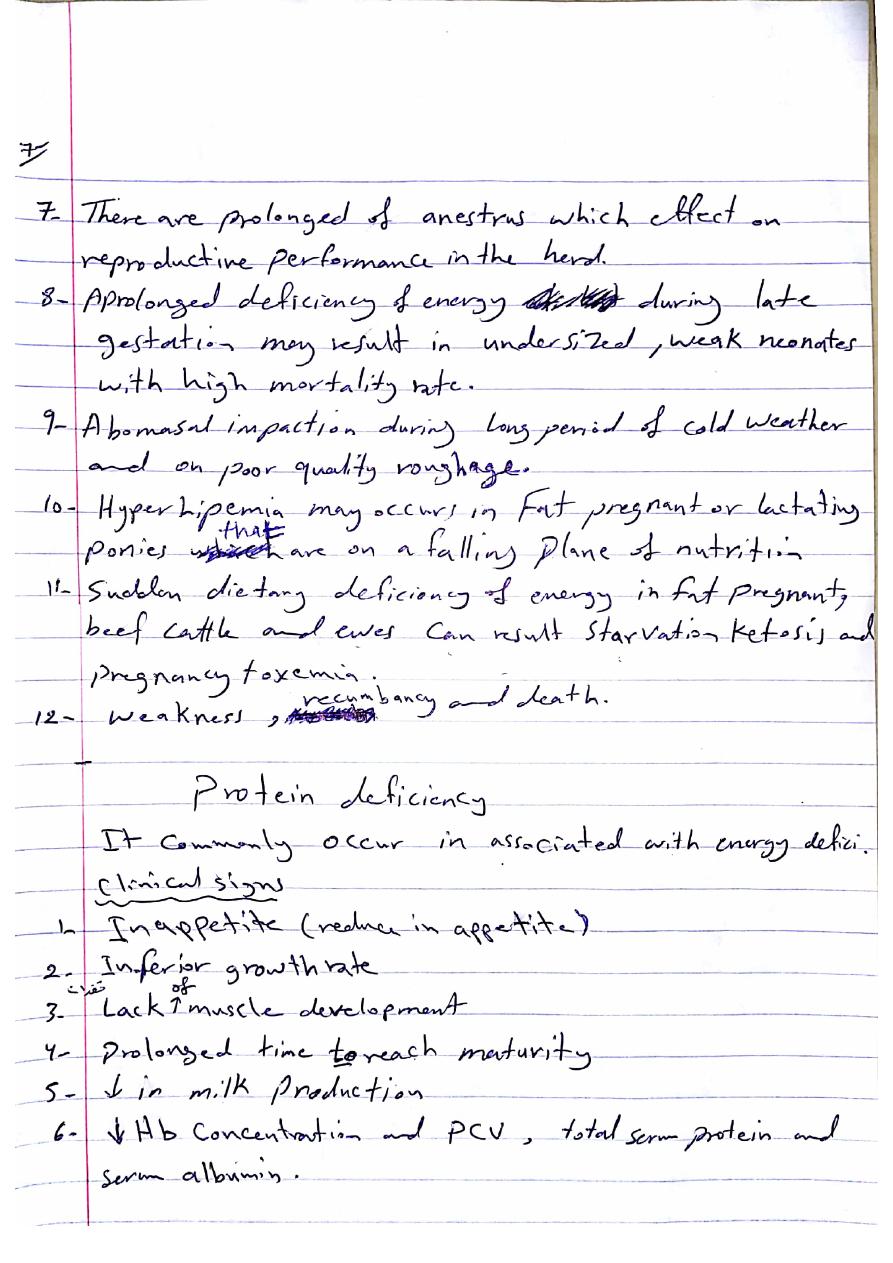 7
7- There are prolonged of anestrus which effect on
reproductive performance in the herd.
8- A prolonged deficiency of energy during late
gestation may result in undersized, weak neonates
with high mortality rate.
9- Abomasal impaction during long period of cold weather
and on poor quality roughage.
10- Hyperlipemia may occurs in Fat pregnant or lactating
ponies that are on a falling plane of nutrition
11- Sudden dietary deficiency of energy in fat pregnant,
beef cattle and ewes can result starvation ketosis and
pregnancy toxemia.
12- weakness, recumbancy and death.
Protein deficiency
It commonly occur in associated with energy defici.
Clinical signs
1- Inappetite (reduce in appetite)
2- Inferior growth rate
3- Lack of muscle development
4- Prolonged time to reach maturity
5- ↓ in milk production
6- ↓ Hb Concentration and PCV, total serum protein and
serum albumin.